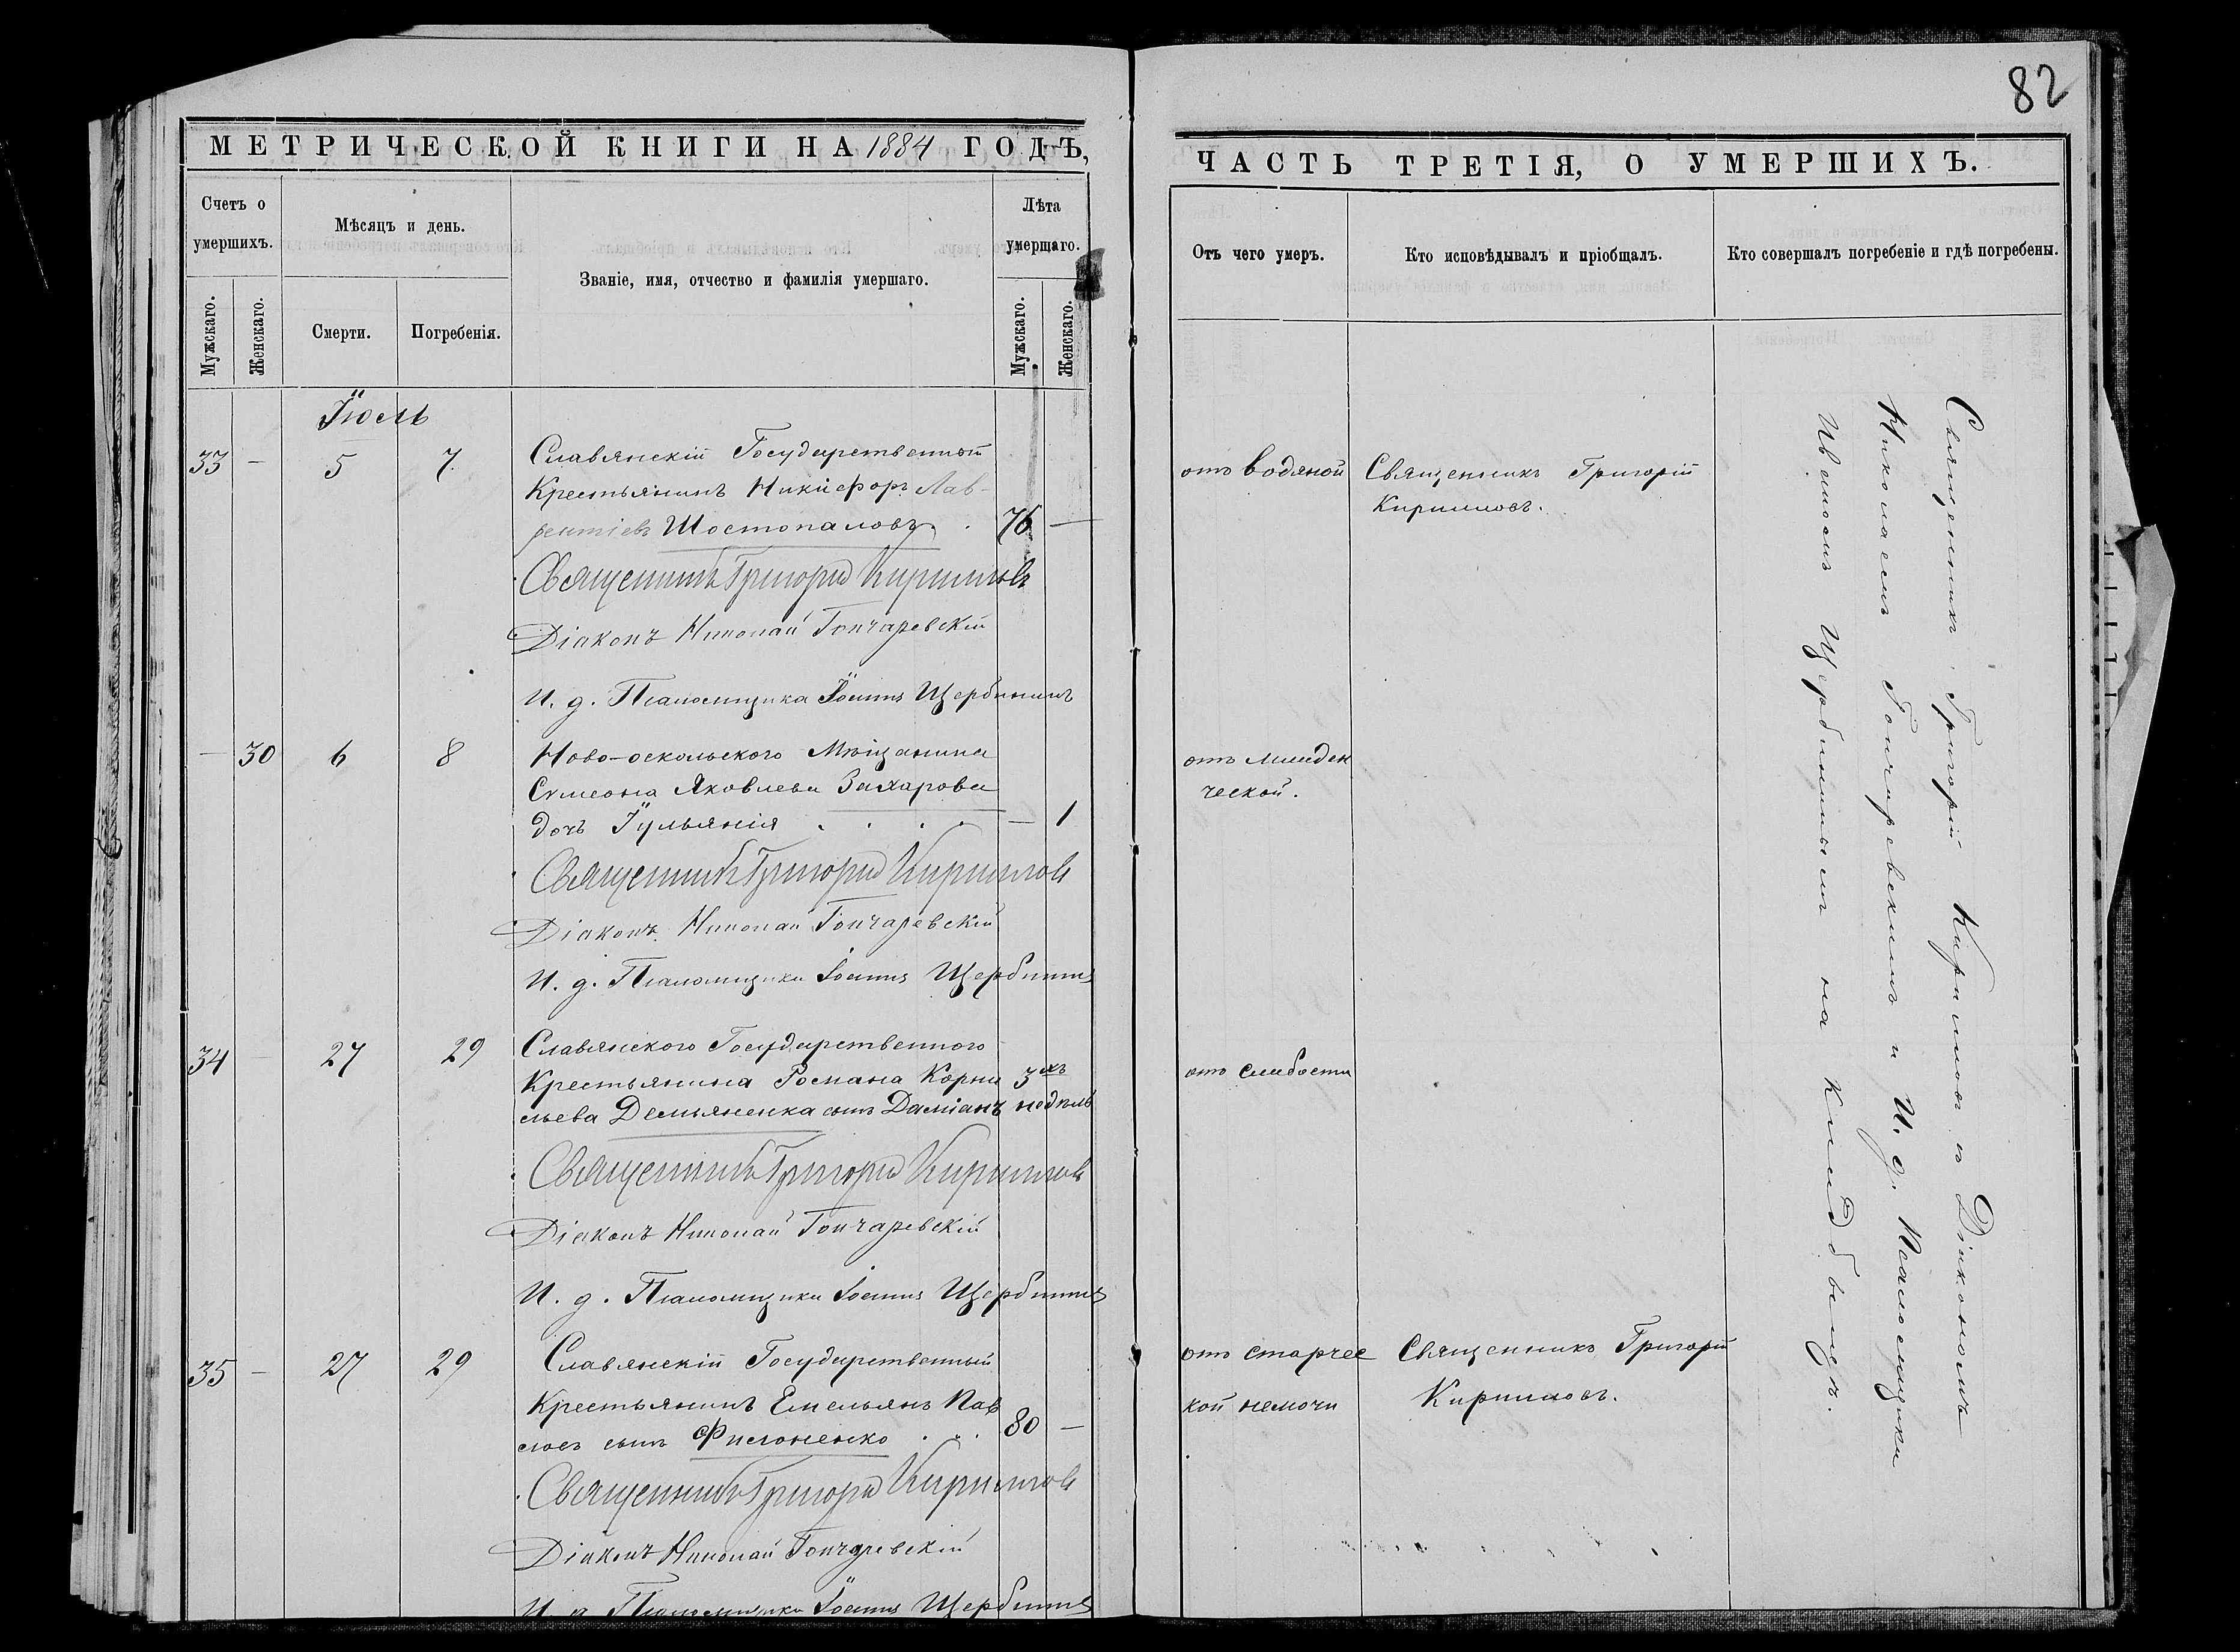 82
МЕТРИЧЕСКОЙ КНИГИ НА 1884 ГОДЪ,
Счетъ о умершихъ.
Мужскаго.
Женскаго.
Мѣсяцъ и день.
Смерти.
Погребенія.
Званіе, имя, отчество и фамилія умершаго.
Лѣта умершаго.
Мужскаго.
Женскаго.
Іюль
33 - 5 7
Славянскій Государственный
Крестьянинъ Никифоръ Лав-
рентіевъ Шостопаловъ. 76 —
Священникъ Григорій Кирилловъ
Діаконъ Николай Гончаревскій
И. д. Псаломщика Іоаннъ Щербининъ
— 30 6 8
Ново-оскольского Мѣщанина
Сѵмеона Яковлева Захарова
дочь Іульянія . . . . — 1
Священникъ Григорій Кирилловъ
Діаконъ Николай Гончаревскій
И. д. Псаломщика Іоаннъ Щербининъ
34 - 27 29
Славянского Государственного
Крестьянина Романа Корни 3хъ
льева Демьяненка сынъ Даміанъ недѣль
Священникъ Григорій Кирилловъ
Діаконъ Николай Гончаревскій
И. д. Псаломщика Іоаннъ Щербининъ
35 - 27 29
Славянскій Государственный
Крестьянинъ Емельянъ Пав
ловъ сынъ Филоненко . . . 80 —
Священникъ Григорій Кирилловъ
Діаконъ Николай Гончаревскій
И. д. Псаломщика Іоаннъ Щербининъ
ЧАСТЬ ТРЕТІЯ, О УМЕРШИХЪ.
Отъ чего умеръ.
Кто исповѣдывалъ и пріобщалъ.
Кто совершалъ погребеніе и гдѣ погребены.
отъ водяной
Священникъ Григорій
Кирилловъ.
отъ младен
ческой.
отъ слабости
отъ старчес
кой немочи
Священникъ Григорій
Кирилловъ.
Священникъ Григорій Кирилловъ съ Діакономъ
Николаемъ Гончаревскимъ и И. д. Псаломщика
Иваномъ Щербининымъ на кладбищѣ.